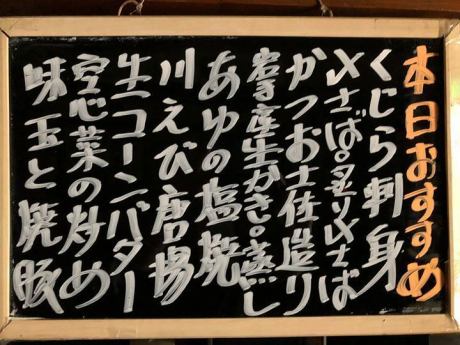 本日おすすめ
くじら刺身
〆さば。炙り〆さば
かつお土佐造り
岩手産生かき。蒸し
あゆの塩焼
川えび唐揚
生コーンバター
空心菜の炒め
味玉と焼豚